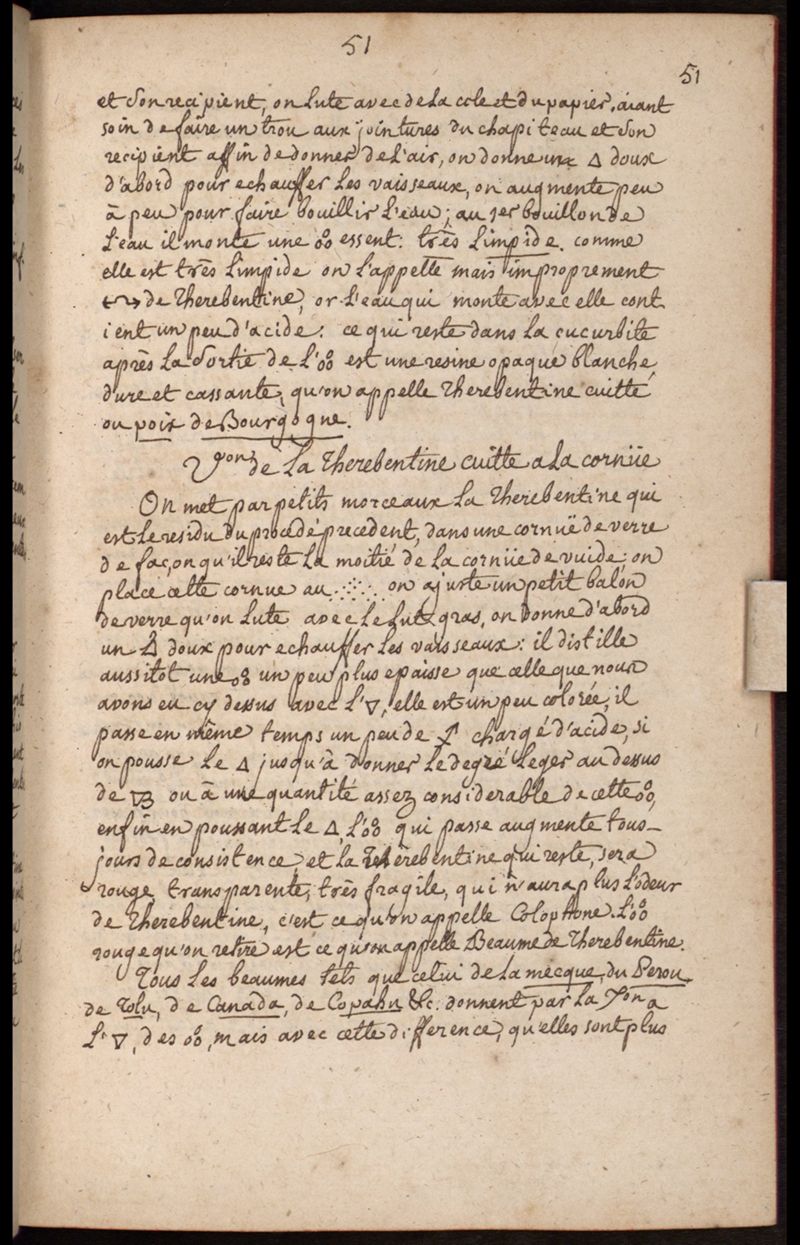 51
51
et son recipient, on lute avec de la cole et du papier, aiant
soin de faire un trou aux jointures du chapiteau et son
recipient affin de donner de l'air, on donne un 🜂 doux
d'abord pour echauffer les vaisseaux, on augmente peu
à peu pour faire bouillir l'eau; au 1er bouillon de
l'eau il monte une o⚬o essent. très limpide. comme
elle est très limpide on l'appelle mais improprement
de Therebentine, or l'eau qui monte avec elle cont
ient un peu d'acide: ce qui reste dans la cucurbite
après la sortie de l'o⚬o est une resine opaque blanche,
dure et cassante, qu'on appelle Therebentine cuitte
ou poix de Bourgogne.
de la Therebentine cuitte a la cornüe
On met par petits morceaux la Therebentine qui
est le residu du procedé precedent, dans une cornuë de verre
de façon qu'il reste la moitié de la cornüe de vuide; on
place cette cornue au ⁘ on ajuste un petit balon
de verre qu'on lute avec le lut gras, on donne d'abord
un 🜂 doux pour echauffer les vaisseaux: il distille
aussitot une o⚬o un peu plus epaisse que celle que nous
avons eu cy dessus avec l'🜄, elle est un peu colorée, il
passe en même temps un peu de chargé d'acide, si
on pousse le 🜂 jusqu'à donner le degré leger au dessus
de ou à une quantité assez considerable de cette o⚬o,
enfin en poussant le 🜂, l'o⚬o qui passe augmente tous-
jours de consistence, et la Thèrebentine qui reste, sera
rouge, transparente, très fragile, qui n'aura plus l'odeur
de Therebentine, c'est ce qu'on appelle Colophone. l'o⚬o
rouge qu'on retire est ce qu'on appelle Beaume de Therebentine.
Tous les beaumes tels que celui de la mecque, du Perou,
de Tolu, de Canada, de Copahu &c. donnent par la on a
l'🜄, des o⚬o, mais avec cette difference, qu'elles sont plus